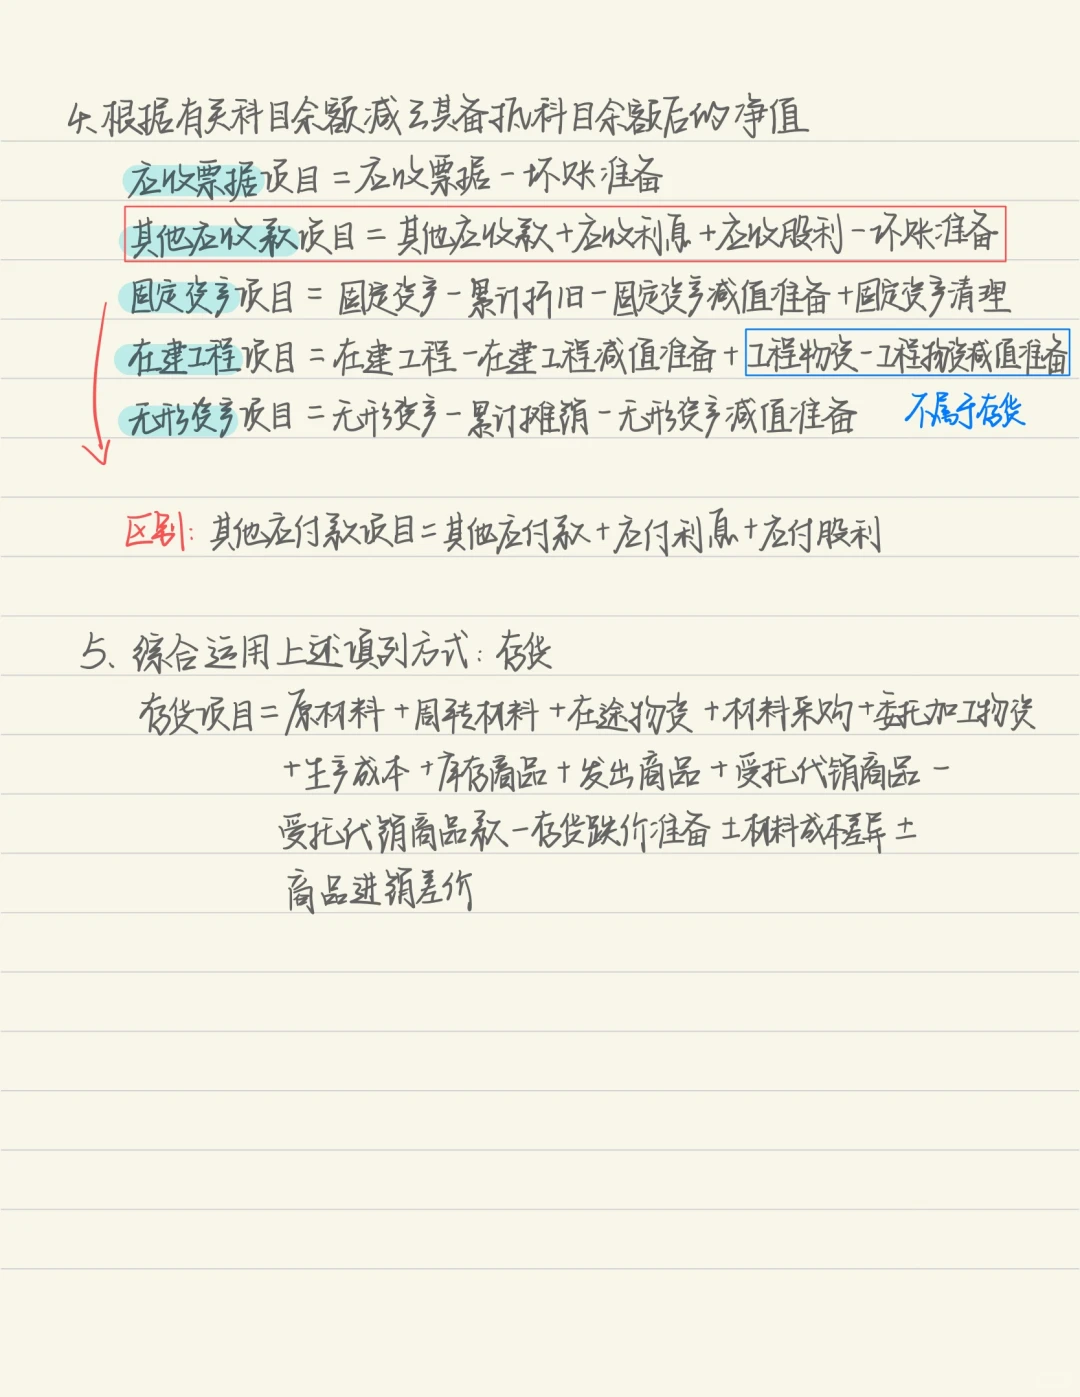 4、根据有关科目余额减去其备抵科目余额后的净值
应收票据项目=应收票据-坏账准备
其他应收款项目=其他应收款+应收利息+应收股利-坏账准备
固定资产项目=固定资产-累计折旧-固定资产减值准备+固定资产清理
在建工程项目=在建工程-在建工程减值准备+工程物资-工程物资减值准备
无形资产项目=无形资产-累计摊销-无形资产减值准备 不属于存货
区别:其他应付款项目=其他应付款+应付利息+应付股利
5、综合运用上述填列方式:存货
存货项目=原材料+周转材料+在途物资+材料采购+委托加工物资
+生产成本+库存商品+发出商品+受托代销商品-
受托代销商品款-存货跌价准备±材料成本差异±
商品进销差价